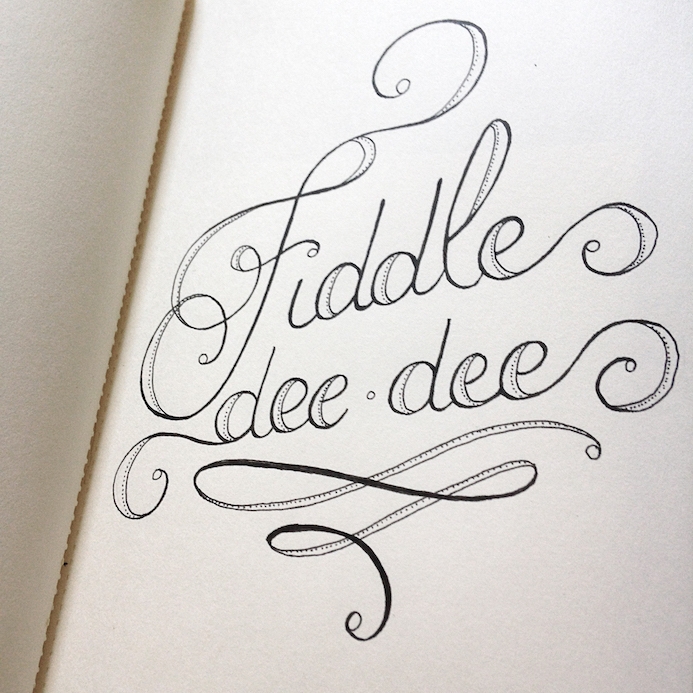 Fiddle
dee·dee